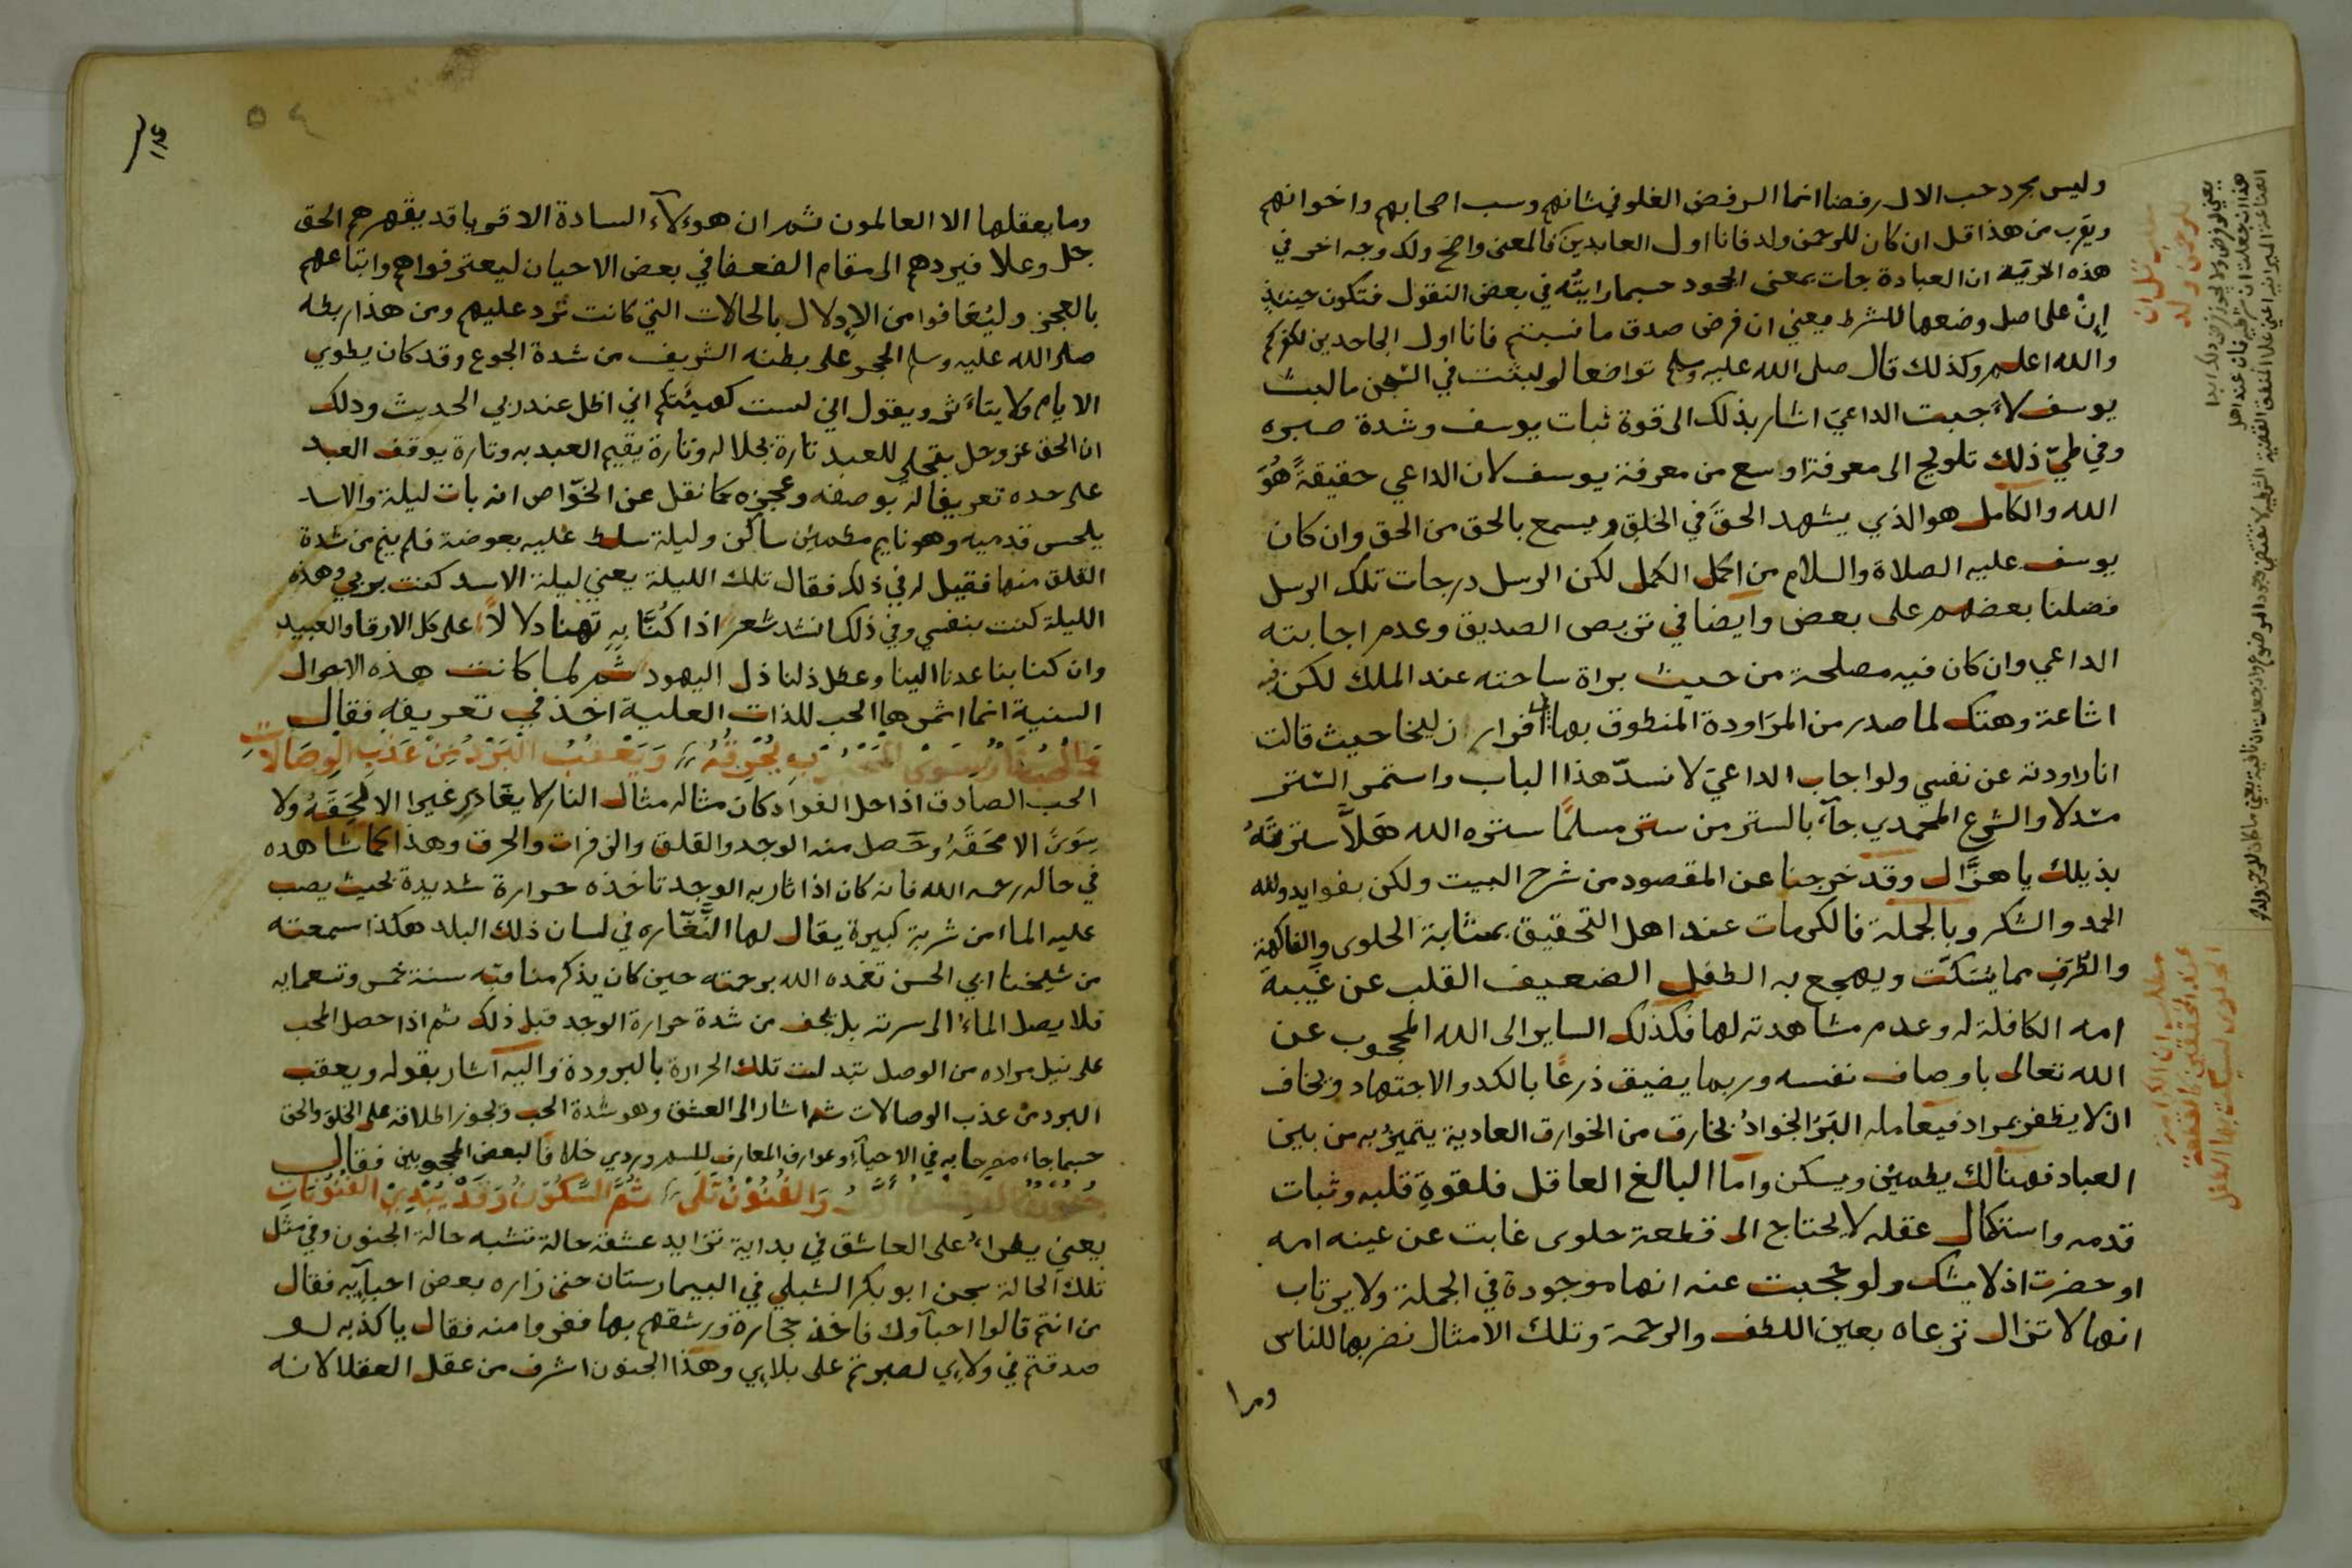 وليس مجرد حب الال رفضا انما الرفض الغلو في شانهم وسب اصحابهم واخوانهم
ويقرب من هذا قل ان كان للرحمن ولد فانا اول العابدين فالمعنى واضح ولك وجه اخر في
هذه ان العبادة جات بمعنى الجحود حسبما رايته في بعض النقول فتكون حينئذ
إنْ على اصل وضعها للشرط يعني ان فرض صدق ما نسبتم فانا اول الجاحدين لكم
والله اعلم وكذلك قال صلى الله عليه وسلم تواضعا لو لبثت في السجن ما لبث
يوسف لاَجبت الداعي اشار بذلك الى قوة ثبات يوسف وشدة صبره
وفي طيّ ذلك تلويح الى معرفة اوسع من معرفة يوسف لان الداعي حقيقةً هُوَ
الله والكامل هو الذي يشهد الحقَّ في الخلق ويسمع بالحق من الحق وان كان
يوسف عليه الصلاة والسلام من اكمل الكمل لكن الرسل درجات تلك الرسل
فضلنا بعضهم على بعض وايضا في تربص الصديق وعدم اجابته
الداعي وان كان فيه مصلحة من حيث براة ساحته عند الملك لكن فيه
اشاعة وهتك لما صدر من المرَاودة المنطوق بها اقرار زليخا حيث قالت
انا راودته عن نفسي ولو اجاب الداعيَ لانسدّ هذا الباب واستمر الستر
مسدلا والشرع المحمدي جآء بالستر من ستر مسلمًا ستره الله هَلاَّ سترتَهُ
بذيلك يا هزَّال وقد خرجنا عن المقصود من شرح البيت ولكن بفوايد ولله
الحمد والشكر وبالجملة فالكرمات عند اهل التحقيق بمثابة الحلوى والفاكهة
والطُرَفِ مما يُسَكّت ويهجع به الطفل الضعيف القلب عن غَيبة
امه الكافلة له وعدم مشاهدته لها فكذلك الساير الى الله المحجوب عن
الله تعالى باوصاف نفسه وربما يضيق ذرعًا بالكد والاجتهاد ويخاف
ان لا يظفر بمراد فيعامله البَرّ الجَوادُ بخارق من الخوارق العادية يتميزُ به من بين
العباد فهنالك يطمئِن ويسكن واما البالغ العاقل فلقوةِ قلبه وثبات
قدمه واستكمال عقله لا يحتاج الى قطعة حلوى غابت عن عينه امه
او حضرت اذ لا يشك ولو حجبت عنه انها موجودة في الجملة ولا يرتاب
انها لا تزال ترعاه بعين اللطف والرحمة وتلك الامثال نضربها للناس
وما
مطلب قل ان
للرحمن ولد
مطلب ان الكرامة
عند المحققين بمنزلة
الحلوى ليسكت بها الطفل
٥٤
وما يعقلها الا العالمون ثم ان هوءلآء السادة الاقويا قد يقهرهم الحق
جل وعلا فيردهم الى مقام الضعفا في بعض الاحيان ليعترفوا هم واتباعهم
بالعجز وليُعَافوا من الإدلال بالحالات التي كانت تُرد عليهم ومن هذا ربطه
صلى الله عليه وسلم الحجر على بطنه الشريف من شدة الجوع وقد كان يطوي
الايام ولا يتاءثر ويقول اني لست كهيئتكم اني اظل عند ربي الحديث وذلك
ان الحق عز وجل يتجلى للعبد تارة بجلاله وتارة يقيم العبد به وتارة يوقف العبد
على حده تعريفا له بوصفه وعجزه كما نقل عن الخوّاص انه بات ليلة والاسد
يلحس قدميه وهو نايم مطمئِن ساكن وليلة سلط عليه بعوضة فلم ينم من شدة
القلق منها فقيل له في ذلك فقال تلك الليلة يعني ليلة الاسد كنت بربي وهذه
الليلة كنت بنفسي وفي ذلك انشد شعر اذا كُنَّا بِهِ تِهنا دلالاً على كل الارقا والعبيد
وان كنا بنا عدنا الينا وعطل ذلنا ذل اليهود ثم لما كانت هذه الاحوال
السنية انما اثمرها الحب للذات العلية اخذ في تعريفه فقال
وَيَعْقُبُ البَرْدُ مِنْ عَذْبِ الوِصَالاَتِ
الحب الصادق اذا حل الفواد كان مثاله مثال النار لا يغَادِر غيرا الا محَقَهُ ولا
سِوَىً الا محَقَهُ وحَصل منه الوجد والقلق والزفرات والحرق وهذا كما شاهده
في حاله رحمه الله فانه كان اذا ثار به الوجد تاخذه حرارة شديدة بحيث يصب
عليه الما من شربة كبيرة يقال لها النَّغّاره في لسان ذلك البلد هكذا سمعته
من شيخنا ابي الحسن تغمده الله برحمته حين كان يذكر مناقبه سنة خمس وتسعمايه
فلا يصل الماءُ الى سرته بل يجف من شدة حرارة الوجد قبل ذلك ثم اذا حصل المحب
على نيل مراده من الوصل تبدلت تلك الحرارة بالبرودة واليه اشار بقوله ويعقب
البرد من عذب الوصالات ثم اشار الى العشق وهو شدة الحب ويجوز اطلاقه على الخلق والحق
حسبما جاء مصرحا به في الاحيآء وعوارف المعارف للسهروردي خلافا لبعض المحجوبين فقال
وَالفُنُونُ تَلَي ثُمَّ السُّكُونُ وَقَدْ يُبْدِيْ الفُنُوْنَاتِ
يعني يطراءُ على العاشق في بداية تزايد عشقه حالة تشبه حالة الجنون وفي مثل
تلك الحالة سجن ابو بكر الشبلي في البيمارستان حتى زاره بعض احبآيه فقال
من انتم قالوا احبآوك فاخذ حجارة ورشقهم بها ففروا منه فقال يا كذبه لو
صدقتم في ولاءي لصبرتم على بلاءي وهذا الجنون اشرف من عقل العقلا لانه